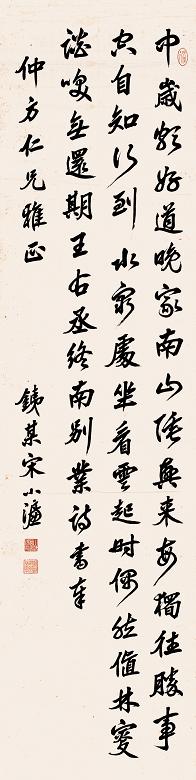 中歲頗好道晚家南山陲興來每獨往勝事
空自知行到水窮處坐看雲起時偶然值林叟
談笑無還期王右丞終南別業詩書奉
仲方仁兄雅正
鐵某宋小濂